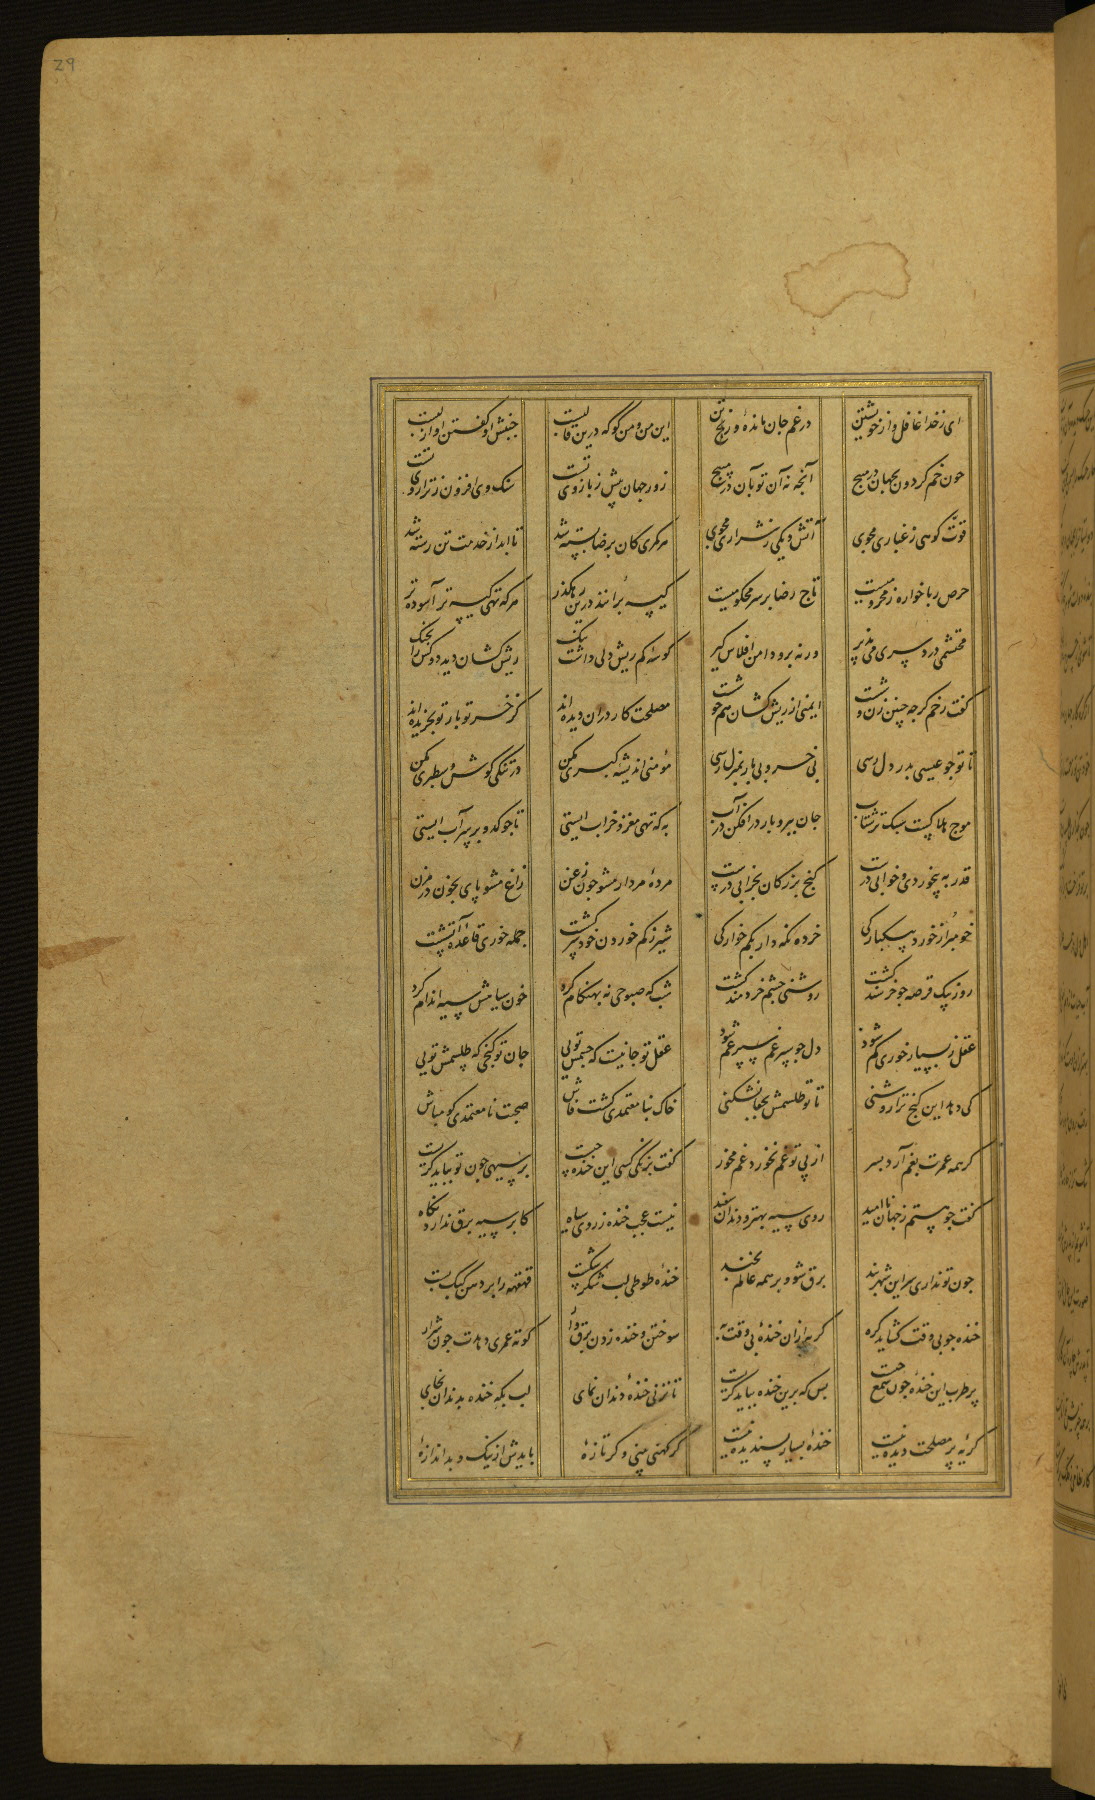 29
ای زخدا غافل و از خویشتن در غم جان مانده و رنج تن این من و من گو که درین قالبست جنبش او گفتن او از لبست
چون خم کردون بجهان در مپیچ آنچه نه آن تو بآن در مپیچ زور جهان بیش ز بازوی تست سنک وی افزون ز ترازوی تست
قوّت کوهی زغباری مجوی آتش دیکی ز شراری مجوی هر کمری کان برضا بسته شد تا ابد از خدمت تن رسته شد
حرص رباخواره ز محرومیست تاج رضا بر سر محکومیست کیسه برانند درین رهکذر هر که تهی کیسه تر آسوده تر
محتشمی درد سری می پذیر ورنه برو دامن افلاس کیر کوسهٔ کم ریش دلی داشت تنک ریش کشان دید دو کس را بجنک
کفت رخم کرچه چنین زشت ایمنی از ریش کشان هم خوشت مصلحت کار در آن دیده اند کز خر تو بار تو بخریده اند
تا تو چو عیسی بدر دل رسی بی خر و بی بار بمنزل رسی مؤمنی اندیشهٔ کبری مکن در تنکی کوش و سطبری مکن
موج هلاکیست سبک تر شتاب جان ببر و بار در افکن در آب به که تهی مغز و خراب ایستی تا چو کدو بر سر آب ایستی
قدر به بیخوردی و خوابی درست کنج بزرکان بخرابی درست مردهٔ مردار مشو چون زغن زاغ مشو پای بخون در مزن
خو مبر از خورد بیکبارکی خرده نکه دار بکم خوارکی شیر ز کم خوردن خود سرکشست جمله خوری قاعدهٔ آتشست
روز بیک قرصه چو خرسند کشت روشنی چشم خردمند کشت شب که صبوحی نه بهنکام کرد خون سیاهش سیه اندام کرد
عقل ز بسیار خوری کم شود دل چو سپر غم سپر غم شود عقل تو جانیست که جسمش تویی جان تو کنجی که طلسمش تویی
کی دهد این کنج ترا روشنی تا تو طلسمش بجفا نشکنی خاک بنا معتمدی کشت فاش صحبت نامعتمدی کو مباش
کر همه عمرت بغم آرد بسر از پی تو غم نخورد غم مخور کفت بزنکی کسی این خنده چیست بر سیهی چون تو بباید کریست
کفت چو هستم ز جهان ناامید روی سیه بهتر و دندان سفید نیست عجب خنده ز روی سیاه کابر سیه برق ندارد نکاه
چون تو نداری سر این شهربند برق شو و بر همه عالم بخند خندهٔ طوطی لب شکر شکست قهقهه را بر دهن کبک بست
خنده چو بی وقت کشاید کره کریه از آن خندهٔ بی وقت به سوختن و خنده زدن برق وار کوته عمری دهدت چون شرار
پر طرب این خندهٔ چون شمع چیست بس که برین خنده بباید کریست تا نزنی خندهٔ دندان نمای لب بکه خنده بدندان بخای
کریهٔ پر مصلحت دیده نیست خندهٔ بسیار پسندیده نیست کر کهنی بینی و کر تازهٔ بایدش از نیک و بد اندازهٔ